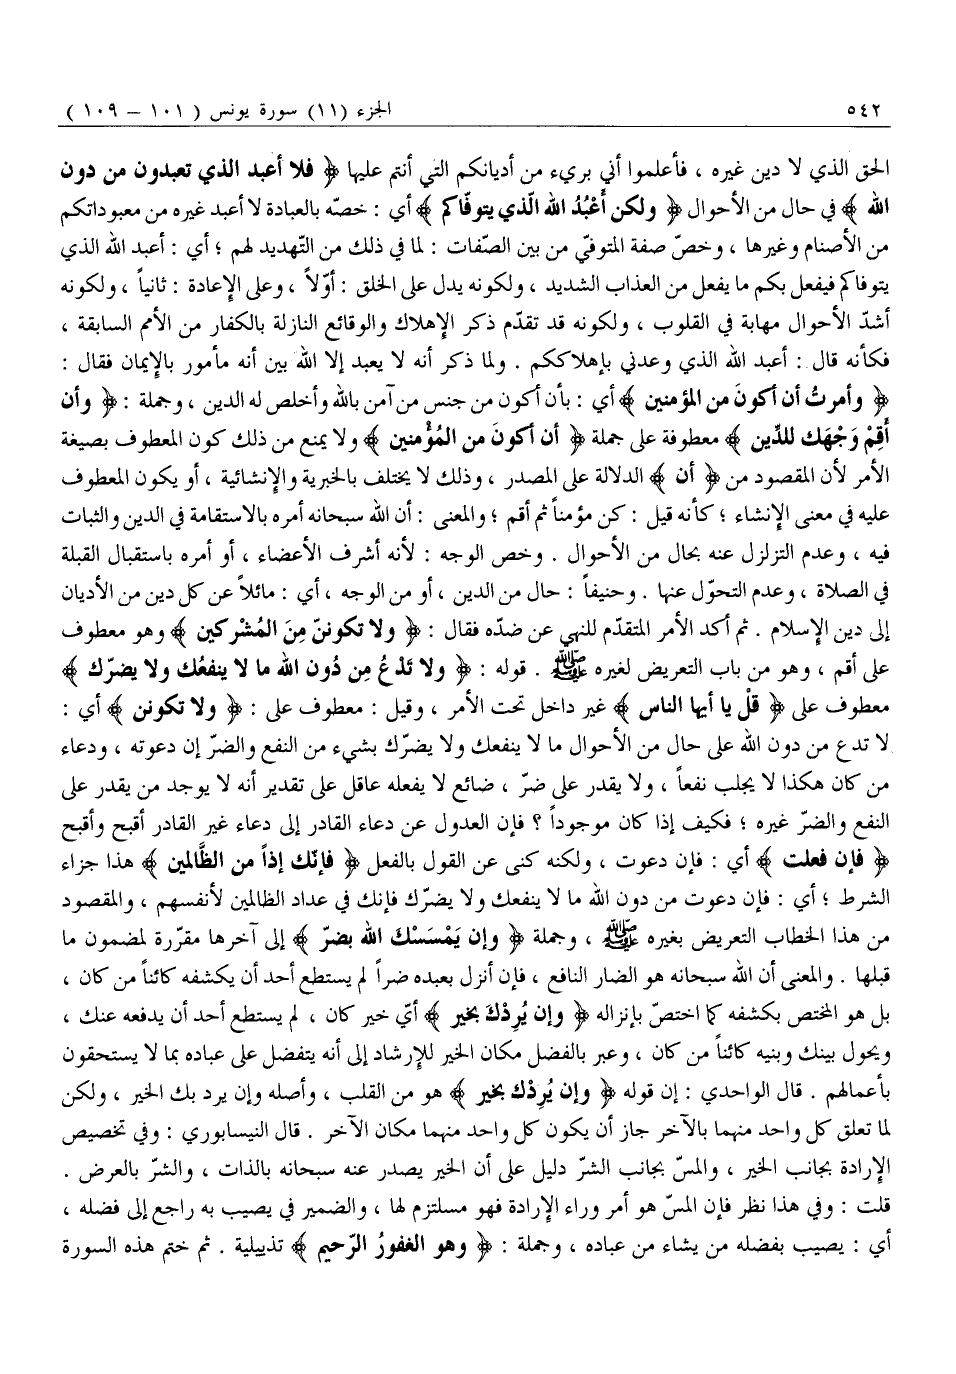 ٥٤٢ الجزء (١١) سورة يونس ( ١٠١ – ١٠٩ )
الحق الذي لا دين غيره ، فأعلموا أني بريء من أديانكم التي أنتم عليها ﴿ فلا أعبد الذي تعبدون من دون
الله ﴾ في حال من الأحوال ﴿ ولكن أَعْبُدُ الله الّذي يتوفّاكم ﴾ أي : خصّه بالعبادة لا أعبد غيره من معبوداتكم
من الأصنام وغيرها ، وخصّ صفة المتوفّي من بين الصّفات : لما في ذلك من التّهديد لهم ؛ أي : أعبد الله الذي
يتوفاكم فيفعل بكم ما يفعل من العذاب الشديد ، ولكونه يدل على الخلق : أوّلاً ، وعلى الإعادة : ثانياً ، ولكونه
أشدّ الأحوال مهابة في القلوب ، ولكونه قد تقدّم ذكر الإهلاك والوقائع النازلة بالكفار من الأمم السابقة ،
فكأنه قال : أعبد الله الذي وعدني بإهلاككم . ولما ذكر أنه لا يعبد إلا الله بين أنه مأمور بالإيمان فقال :
﴿ وأمرتُ أن أكونَ من المؤمنين ﴾ أي : بأن أكون من جنس من آمن بالله وأخلص له الدين ، وجملة : ﴿ وأن
أَقِمْ وَجْهَك للدِّين ﴾ معطوفة على جملة ﴿ أن أكونَ من المُؤْمنين ﴾ ولا يمنع من ذلك كون المعطوف بصيغة
الأمر لأن المقصود من ﴿ أن ﴾ الدلالة على المصدر ، وذلك لا يختلف بالخبرية والإنشائية ، أو يكون المعطوف
عليه في معنى الإنشاء ؛ كأنه قيل : كن مؤمناً ثم أقم ؛ والمعنى : أن الله سبحانه أمره بالاستقامة في الدين والثبات
فيه ، وعدم التزلزل عنه بحال من الأحوال . وخص الوجه : لأنه أشرف الأعضاء ، أو أمره باستقبال القبلة
في الصلاة ، وعدم التحوّل عنها . وحنيفاً : حال من الدين ، أو من الوجه ، أي : مائلاً عن كل دين من الأديان
إلى دين الإسلام . ثم أكد الأمر المتقدّم للنهي عن ضدّه فقال : ﴿ ولا تكوننّ مِنَ المُشْركين ﴾ وهو معطوف
على أقم ، وهو من باب التعريض لغيره ﷺ . قوله : ﴿ ولا تَدْعُ مِن دُون الله ما لا ينفعُك ولا يضرّك ﴾
معطوف على ﴿ قُلْ يا أيها الناس ﴾ غير داخل تحت الأمر ، وقيل : معطوف على : ﴿ ولا تكونن ﴾ أي :
لا تدع من دون الله على حال من الأحوال ما لا ينفعك ولا يضرّك بشيء من النفع والضرّ إن دعوته ، ودعاء
من كان هكذا لا يجلب نفعاً ، ولا يقدر على ضرّ ، ضائع لا يفعله عاقل على تقدير أنه لا يوجد من يقدر على
النفع والضرّ غيره ؛ فكيف إذا كان موجوداً ؟ فإن العدول عن دعاء القادر إلى دعاء غير القادر أقبح وأقبح
﴿ فإن فعلت ﴾ أي : فإن دعوت ، ولكنه كنى عن القول بالفعل ﴿ فإنّك إذاً من الظَّالمين ﴾ هذا جزاء
الشرط ؛ أي : فإن دعوت من دون الله ما لا ينفعك ولا يضرّك فإنك في عداد الظالمين لأنفسهم ، والمقصود
من هذا الخطاب التعريض بغيره ﷺ ، وجملة ﴿ وإن يَمْسَسْكَ الله بضرّ ﴾ إلى آخرها مقرّرة لمضمون ما
قبلها . والمعنى أن الله سبحانه هو الضار النافع ، فإن أنزل بعبده ضراً لم يستطع أحد أن يكشفه كائناً من كان ،
بل هو المختص بكشفه كما اختصّ بإنزاله ﴿ وإن يُرِدْكَ بخير ﴾ أيّ خير كان ، لم يستطع أحد أن يدفعه عنك ،
ويحول بينك وبنيه كائناً من كان ، وعبر بالفضل مكان الخير للإرشاد إلى أنه يتفضل على عباده بما لا يستحقون
بأعمالهم . قال الواحدي : إن قوله ﴿ وإن يُرِدْك بخير ﴾ هو من القلب ، وأصله وإن يرد بك الخير ، ولكن
لما تعلق كل واحد منهما بالآخر جاز أن يكون كل واحد منهما مكان الآخر . قال النيسابوري : وفي تخصيص
الإرادة بجانب الخير ، والمسّ بجانب الشرّ دليل على أن الخير يصدر عنه سبحانه بالذات ، والشرّ بالعرض .
قلت : وفي هذا نظر فإن المسّ هو أمر وراء الإرادة فهو مستلزم لها ، والضمير في يصيب به راجع إلى فضله ،
أي : يصيب بفضله من يشاء من عباده ، وجملة : ﴿ وهو الغفورُ الرّحيم ﴾ تذييلية . ثم ختم هذه السورة